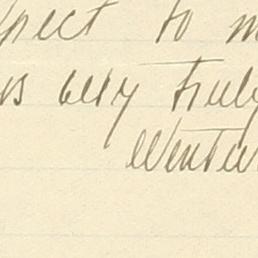 pect to m
rs very truly
Wentw